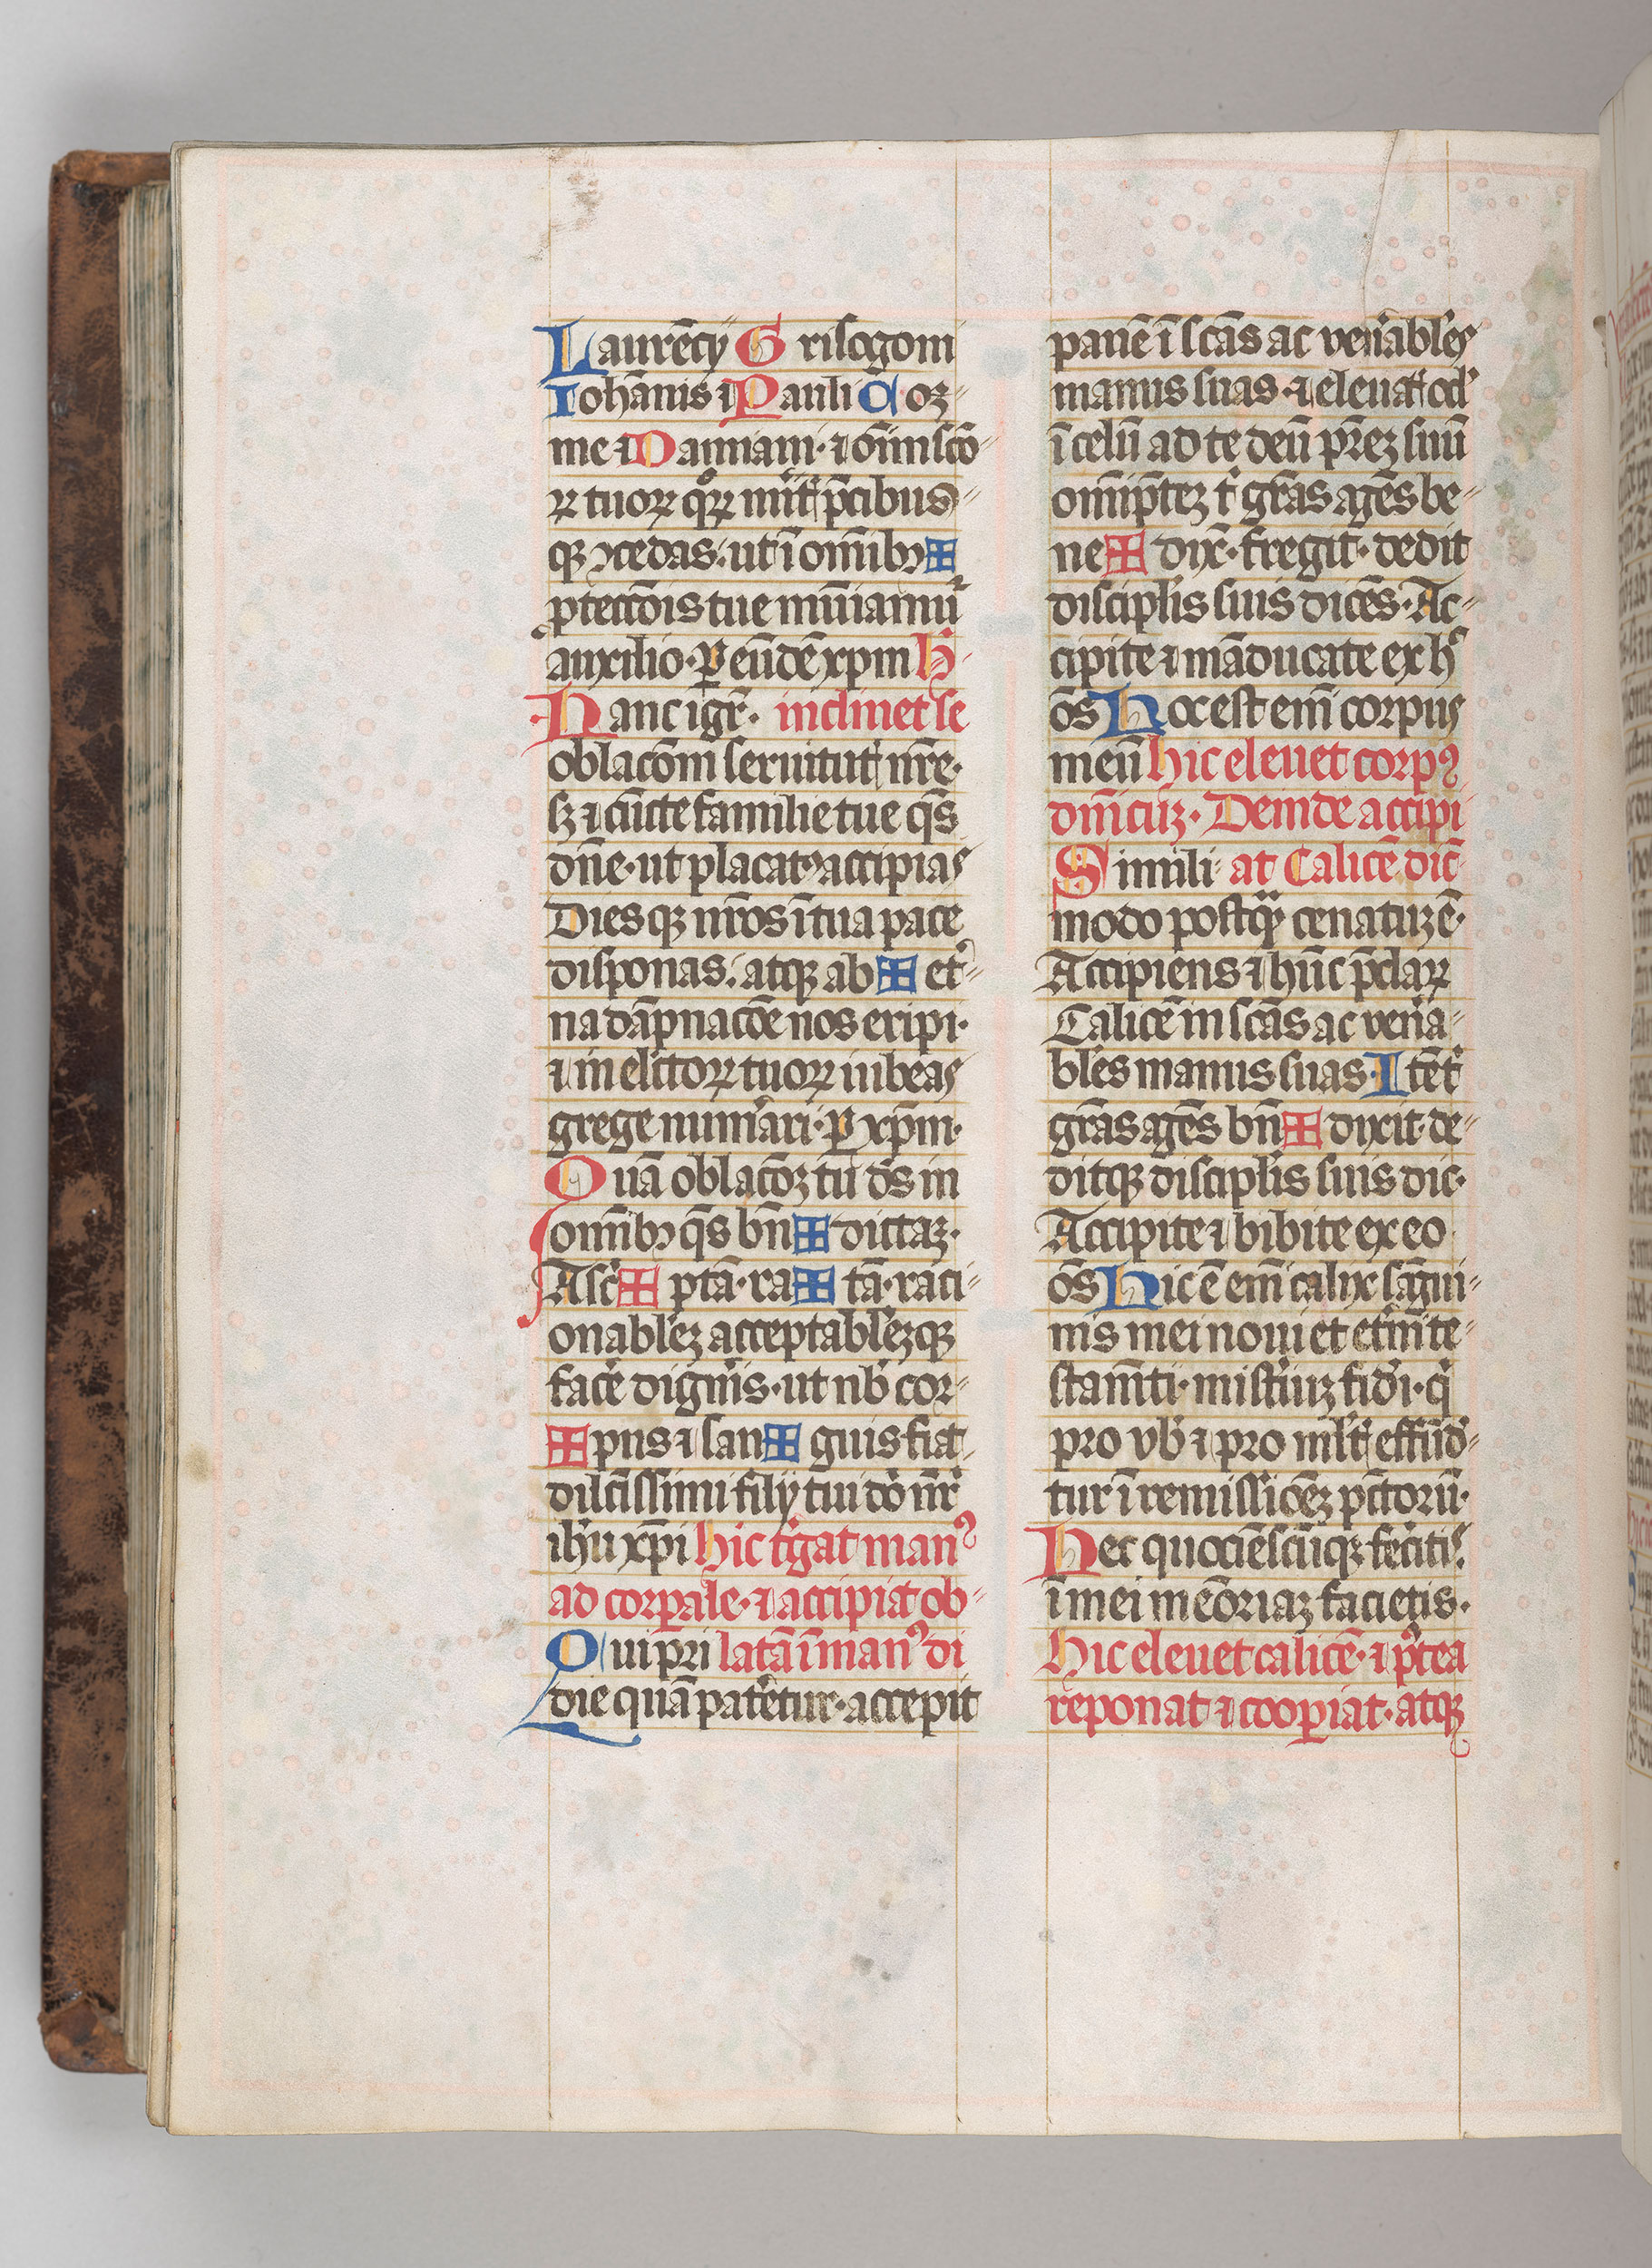 Laurēcy Grisogoni
Iohānis ⁊ Pauli Coz-
me ⁊ Damiani· ⁊ oīm scō-
ꝝ tuoꝝ qͦꝝ mītꝭ p̄cibus-
qꝫ ꝯcedas· ut ī om̄ibꝰ ✠
ꝓtecc̄ois tue mūiamur
auxilio· ꝑ eūdē xp̄m H·
Hanc igr̄· inclinet se
oblacōm seruitutꝭ nr̄e·
sꝫ ⁊ cūcte familie tue qs̄
dn̄e· ut placatꝰ accipias
Diesqꝫ nr̄os ī tua pace
disponas· atqꝫ ab ✠ et̓-
na dāpnacōe nos eripi·
⁊ in elc̄toꝝ tuoꝝ iubeas
grege num̓ari· ꝑ xp̄m·
Quā oblacōꝫ tu ds̄ in
om̄ibꝰ qs̄ bn̄ ✠ dictaꝫ·
Ascͥ ✠ ptā· ra ✠ tā· raci-
onabl̓eꝫ acceptabl̓eꝫqꝫ
fac̓e dignͥs· ut nb̓ cor-
✠ pus ⁊ san ✠ guis fiat
dilc̄issimi filij tui dō nr̄i
ih̓u xp̄i hic t̓gat manꝰ
ad corp̲ale· ⁊ accipiat ob-
Qui pri latā ī manꝰ di
die quā pat̓etur· accepit
panē ī scās ac ven̓abl̓es
manus suas· ⁊ eleuatꝭ ocl̓
ī celū ad te deū pr̄eꝫ suū
om̄ip̄teꝫ tͥ gr̄as agēs be-
ne ✠ dix̄· fregit· dedit
discipl̓is suis dicēs· Ac-
cipite ⁊ māducate ex hͦ
ōs Hoc est em̄ corpus
meū hic eleuet corpꝰ
dn̄icuꝫ· Deinde accipi
Simili at Calicē dic̄
modo postqͣꝫ cenatuꝫ ē·
Accipiens ⁊ hūc p̄claꝝ
Calicē in scās ac ven̓a-
bl̓es manus suas· Itē tͥ
gr̄as agēs bn̄ ✠ dixit· de-
ditqꝫ discipl̓is suis dic·
Accipite ⁊ bibite ex eo
ōs Hic ē em̄ calix sāgui-
nis mei noui et et̓ni te-
stam̄ti· mist̓iuꝫ fid̓i· qͥ
pro vb̓ ⁊ pro ml̓tꝭ effūd̓-
tur ī remissiōeꝫ pc̄torū·
Hec quociēscūqꝫ fec̓itis·
ī mei mēoriaꝫ facietis·
Hic eleuet calicē· ⁊ pͦtea
reponat ⁊ cooꝑiat· atqꝫ